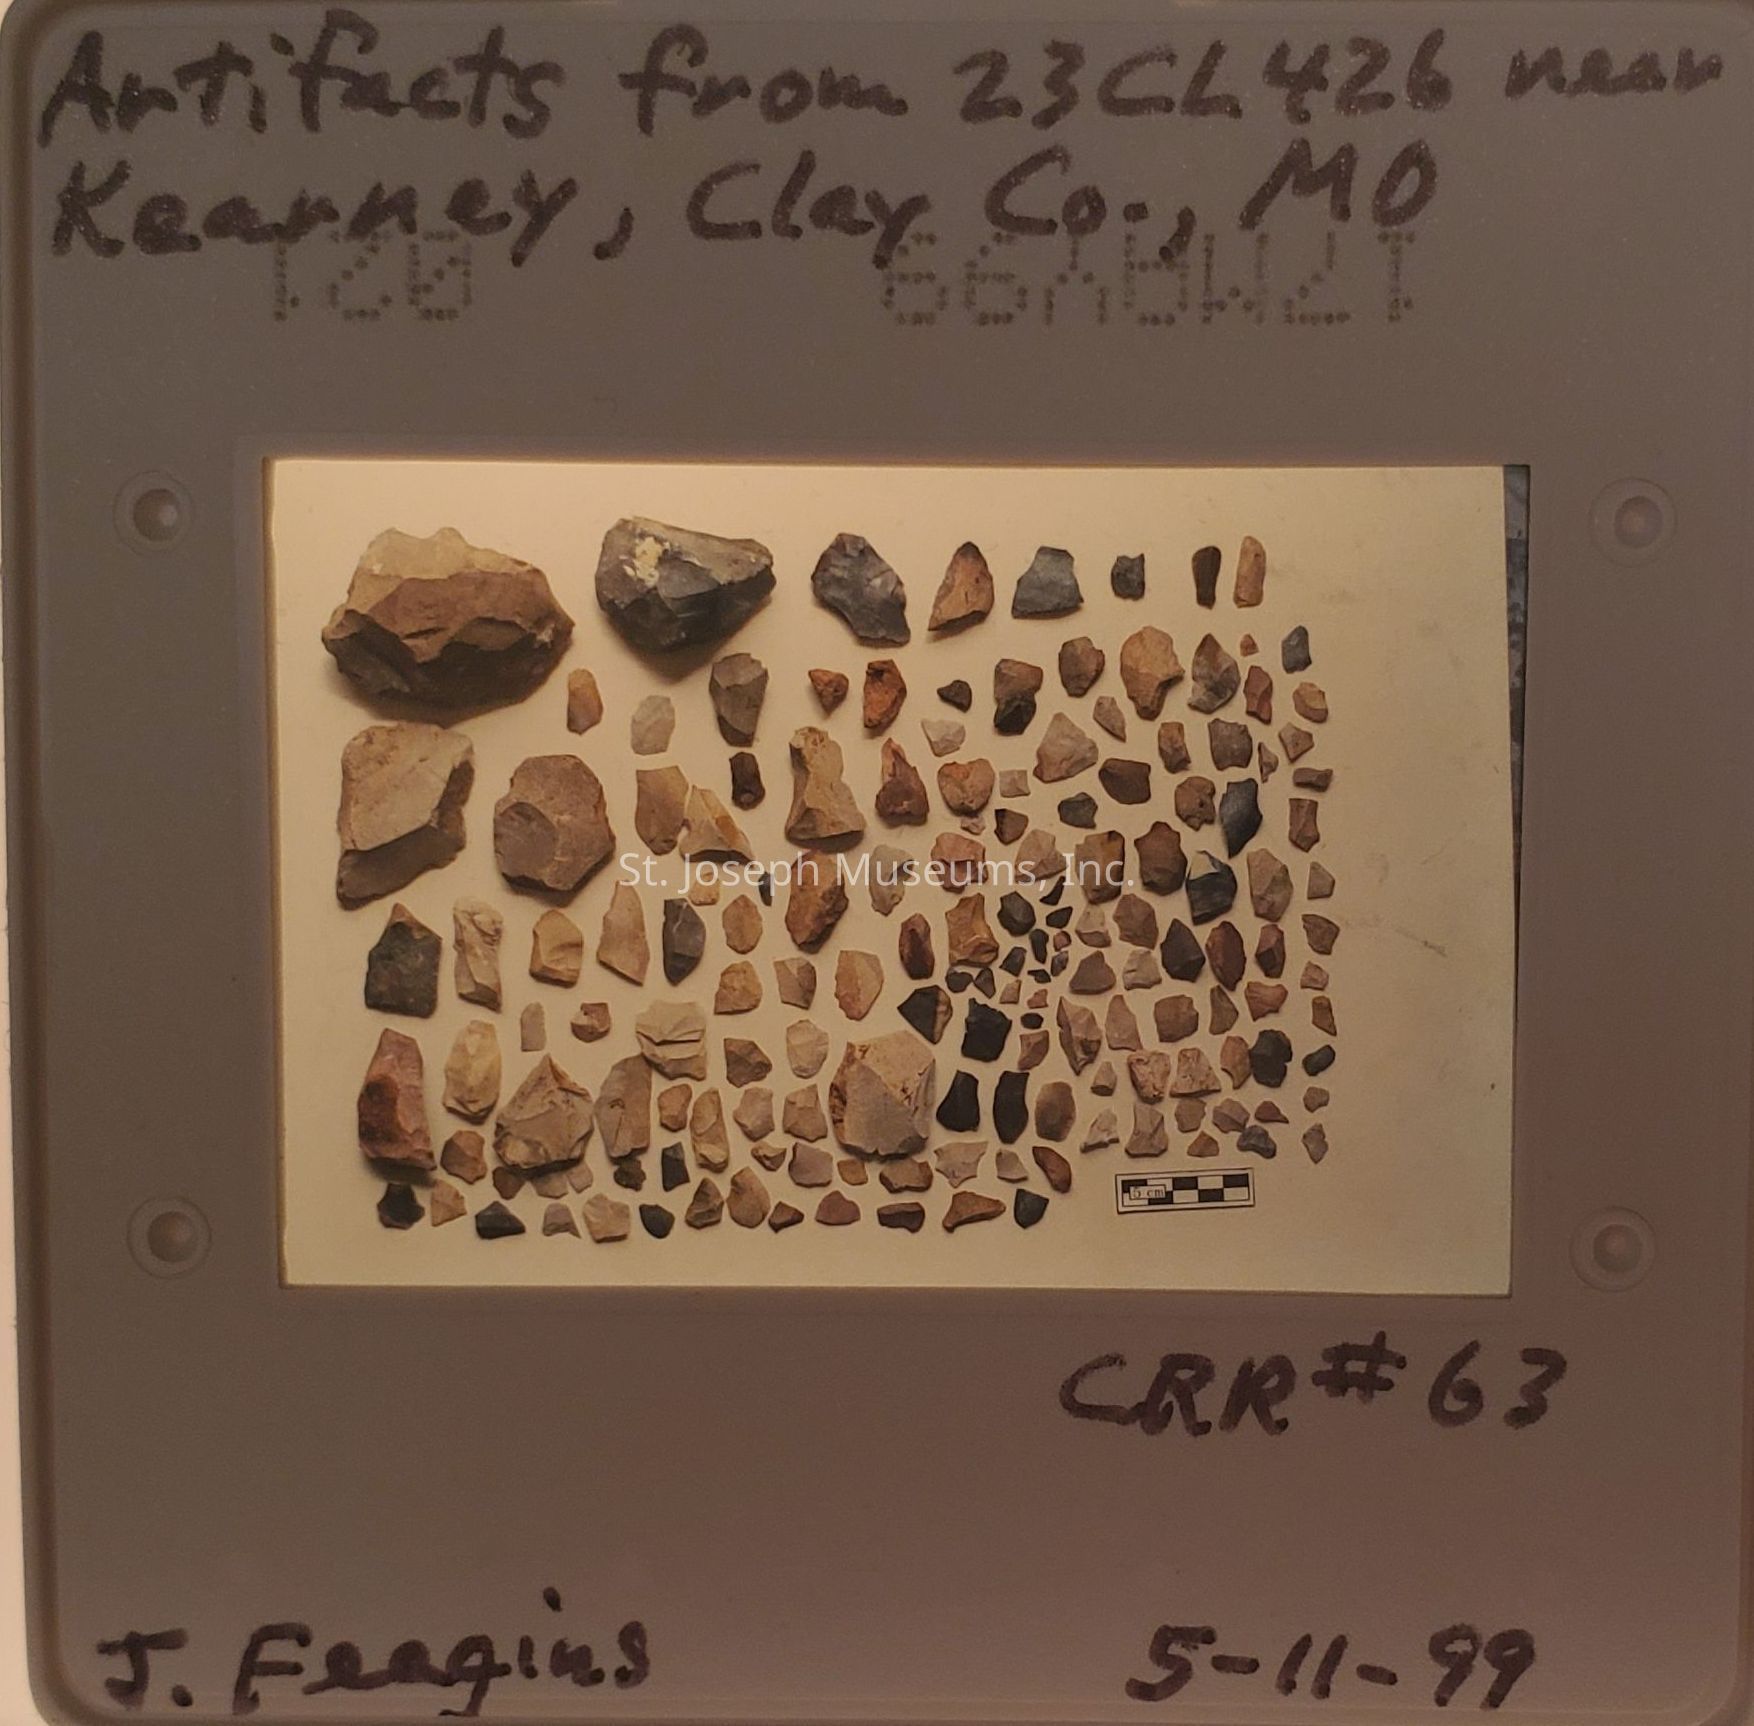 Artifacts from 23CL426 near
Kearney, Clay Co., MO
12MAY99
St. Joseph Museums, Inc.
5 cm
CRR#63
J. Feagins
5-11-99